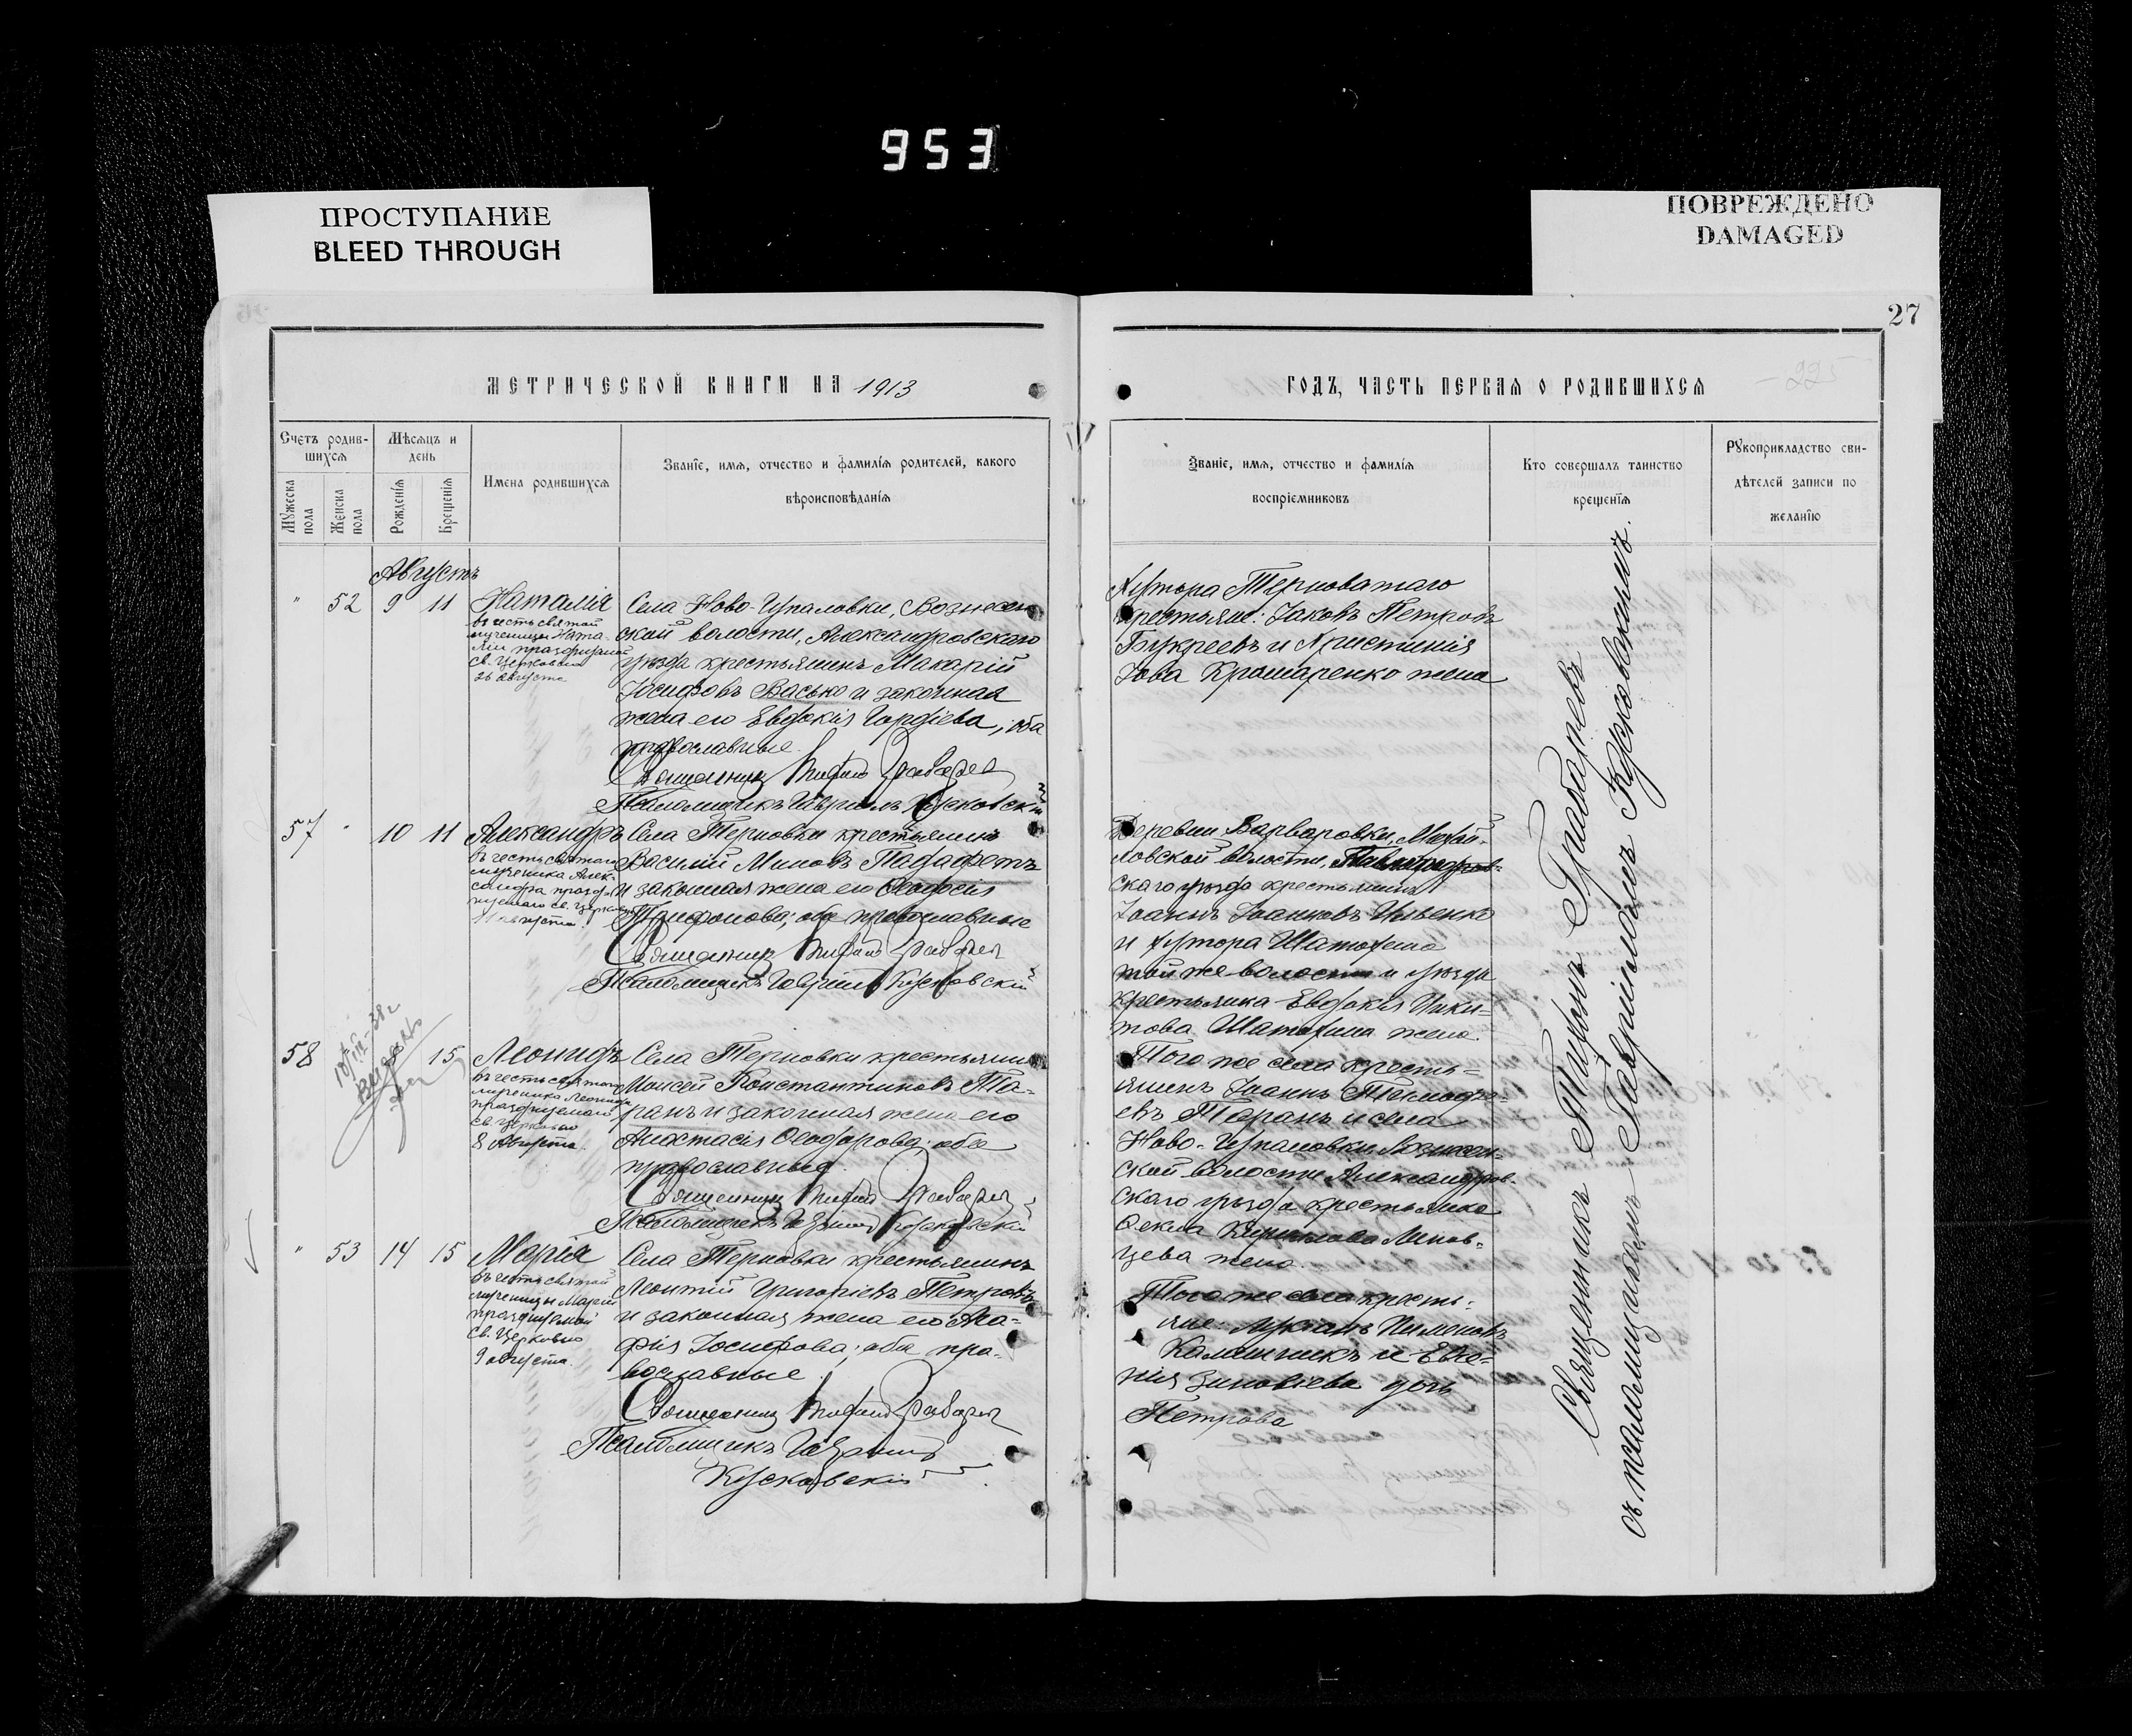 953
ПРОСТУПАНИЕ
BLEED THROUGH
ПОВРЕЖДЕНО
DAMAGED
27
МЕТРИЧЕСКОЙ КНИГИ НА 1913
ГОДЪ, ЧАСТЬ ПЕРВАЯ О РОДИВШИХСЯ
Счетъ родив-
шихся
Мужеска пола
Женска пола
Мѣсяцъ и
день
Рожденія
Крещенія
Имена родившихся
Званіе, имя, отчество и фамилія родителей, какого
вѣроисповѣданія
Званіе, имя, отчество и фамилія
воспріемниковъ
Кто совершалъ таинство
крещенія
Рукоприкладство сви-
дѣтелей записи по
желанію
Августъ
" 52 9 11
Наталія
въ честь святой
мученицы Ната-
ліи празднуемой
св. Церковью
26 августа
Села Ново-Гупаловки, Вознесен
ской волости, Александровскаго
уѣзда крестьянинъ Макарій
Іосифовъ Васько и законная
жена его Евдокія Гордіева, оба
православные.
Священникъ Тифонъ Грабаревъ
Псаломщикъ Гавріилъ Кусковскій
Хутора Терноватаго
крестьяне: Іаковъ Петровъ
Букреевъ и Христинія
Іова Крамаренко жена
57 " 10 11
Александръ
въ честь святаго
мученика Алек-
сандра праздн
уемаго св. Церковью
11 августа.
Села Терновки крестьянинъ
Василій Миновъ
и законная жена его Ѳеодосія
Трифонова; оба православные
Священникъ Тифонъ Грабаревъ
Псаломщикъ Гавріилъ Кусковскій
Деревни Варваровки, Михай-
ловской волости, Павлоградов-
скаго уѣзда крестьянинъ
Іоаннъ Іоанновъ Ильенко
и хутора Шатохина
той же волости и уѣзда
крестьянка Евдокія Ники-
това Шатохина жена.
58 15
Леонидъ
въ честь святаго
мученика Леонида
празднуемаго
св. Церковью
8 Августа.
Села Терновки крестьянинъ
Моисей Константиновъ Та-
ранъ и законная жена его
Анастасія Ѳеодорова; оба
православные.
Священникъ Тифонъ Грабаревъ
Псаломщикъ Гавріилъ Кусковскій
Того же села кресть-
янинъ Іоаннъ
евъ Таранъ и села
Ново-Гупаловки Вознесен-
ской волости Александров-
скаго уѣзда крестьянка
жена.
" 53 14 15
Марія
въ честь святой
мученицы Маріи
празднуемой
св. Церковью
9 августа.
Села Терновки крестьянинъ
Леонтій Григоріевъ Петровъ
и законная жена его Ага-
фія Іосифова; оба пра-
вославные
Священникъ Тифонъ Грабаревъ
Псаломщикъ Гавріилъ
Кусковскій
Того же села кресть-
яне: Лукіанъ Пименовъ
Калашникъ и Евге-
нія Зиновіева дочь
Петрова
Священникъ Тифонъ Грабаревъ
съ псаломщикомъ Гавріиломъ Кусковскимъ.